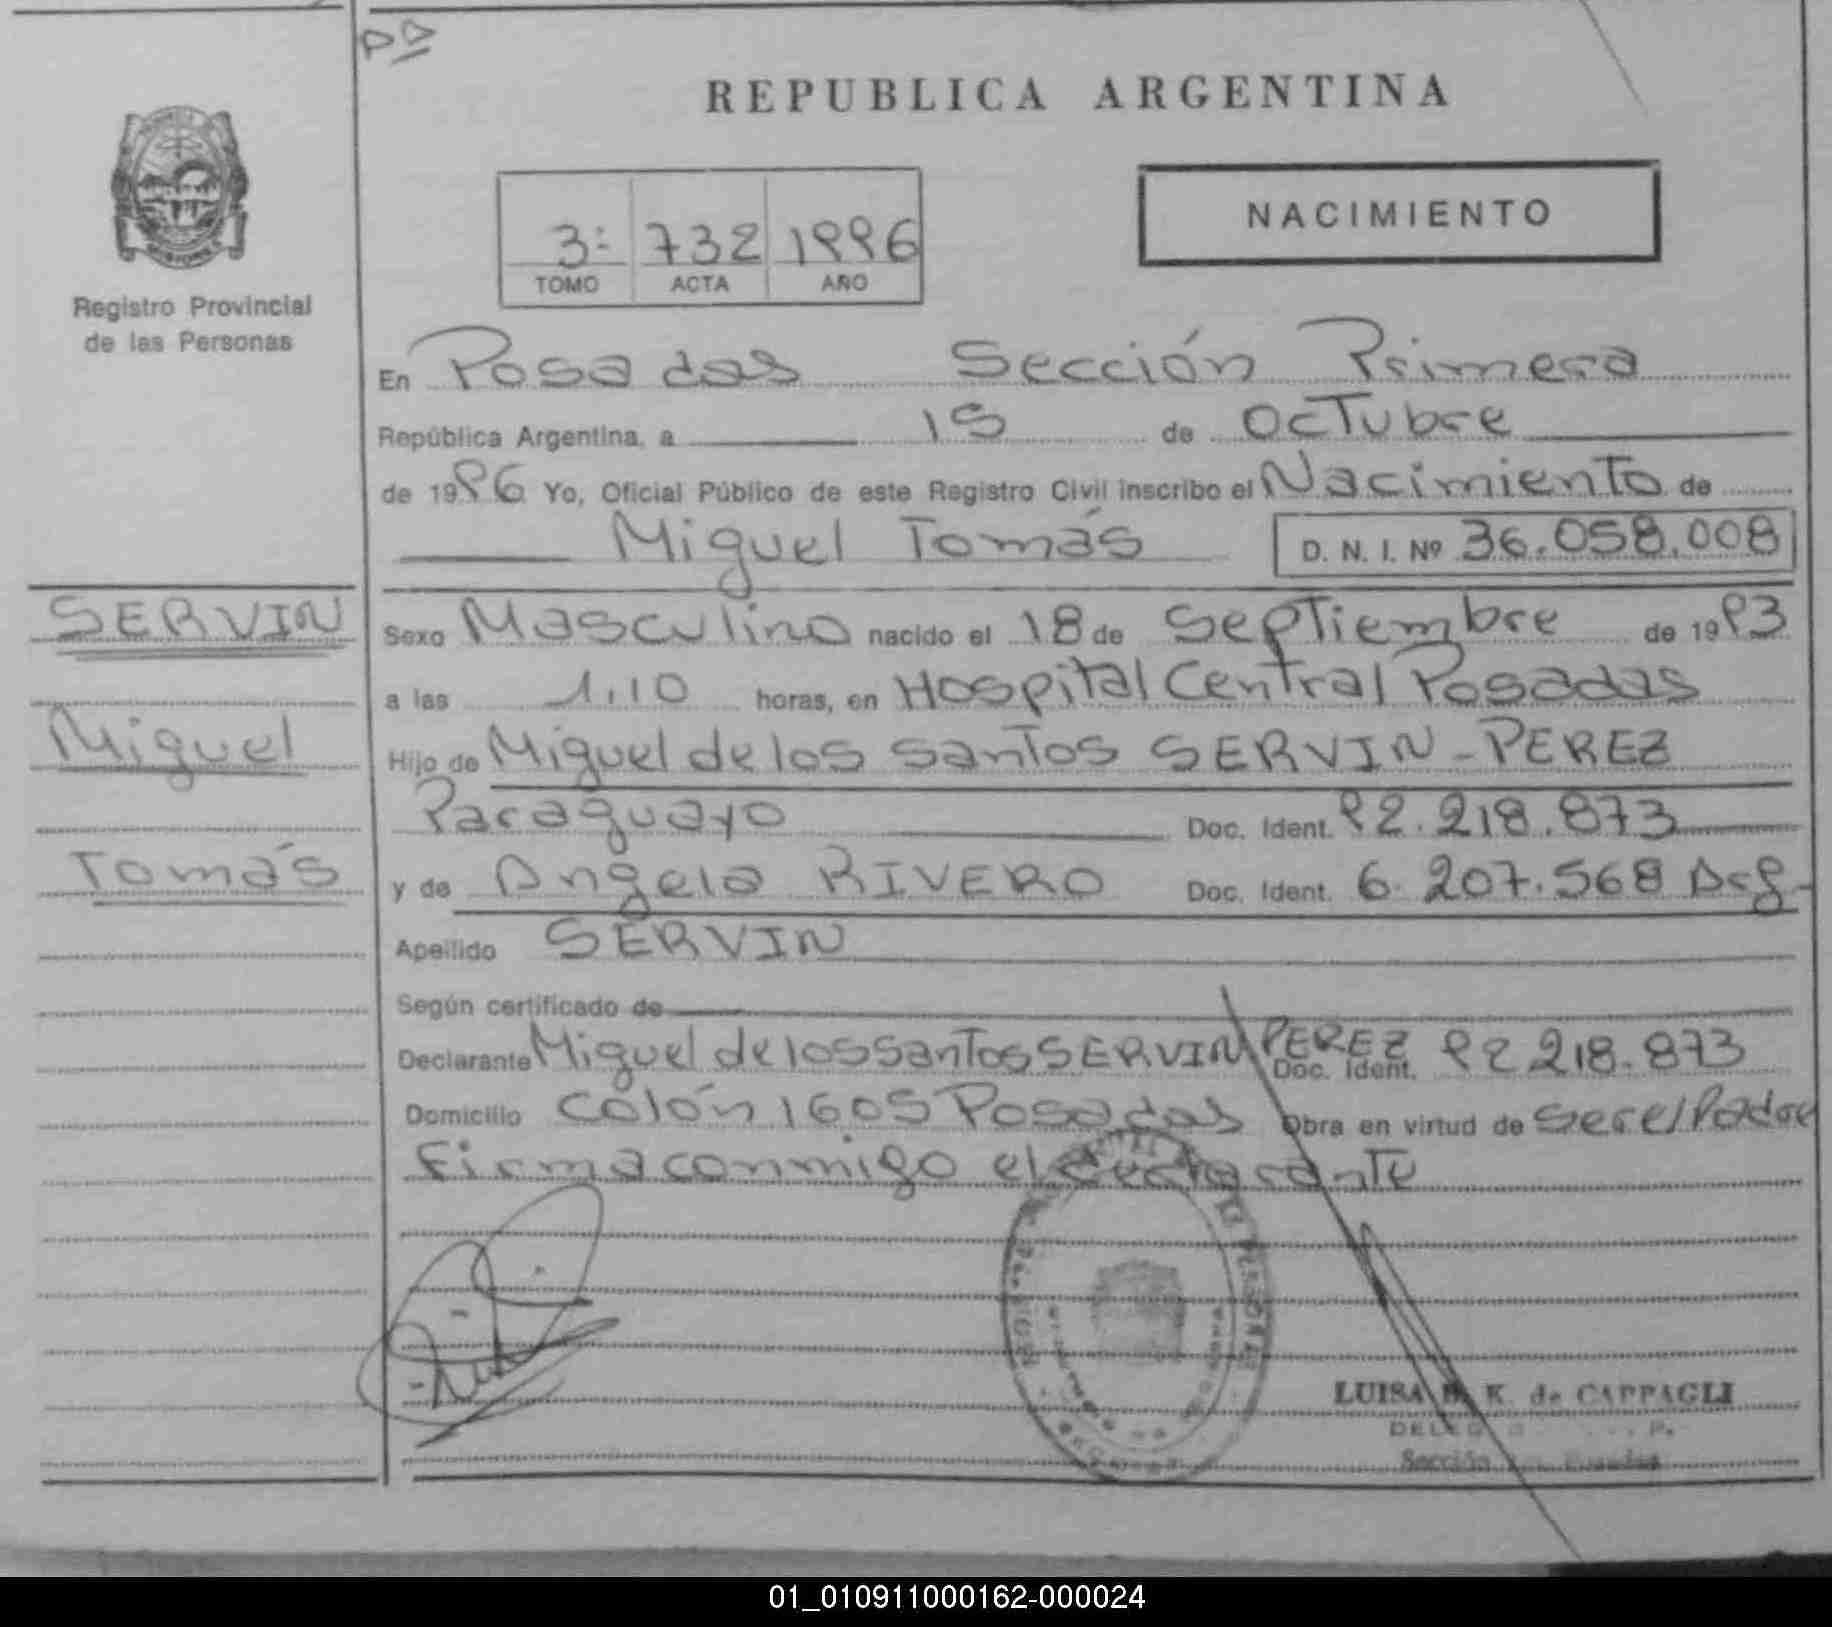 REPUBLICA ARGENTINA
NACIMIENTO
3º 732 1996
TOMO ACTA AÑO
Registro Provincial
de las Personas
En Posadas Sección Primera
República Argentina, a 15 de Octubre
de 1996 Yo, Oficial Público de este Registro Civil inscribo el Nacimiento de
Miguel Tomás D. N. I. Nº 36.058.008
SERVIN
Miguel
Tomás
Sexo Masculino nacido el 18 de Septiembre de 1993
a las 1.10 horas, en Hospital Central Posadas
Hijo de Miguel de los Santos SERVIN - PEREZ
Paraguayo Doc. Ident. 92.218.873
y de Angela RIVERO Doc. Ident. 6.207.568 Arg.
Apellido SERVIN
Según certificado de
Declarante Miguel de los Santos SERVIN PEREZ Doc. Ident. 92 218.873
Domicilio Colón 1605 Posadas Obra en virtud de ser el Padre
Firma conmigo el declarante
LUISA K. de CAPPAGLI
Sección Posadas
01_010911000162-000024